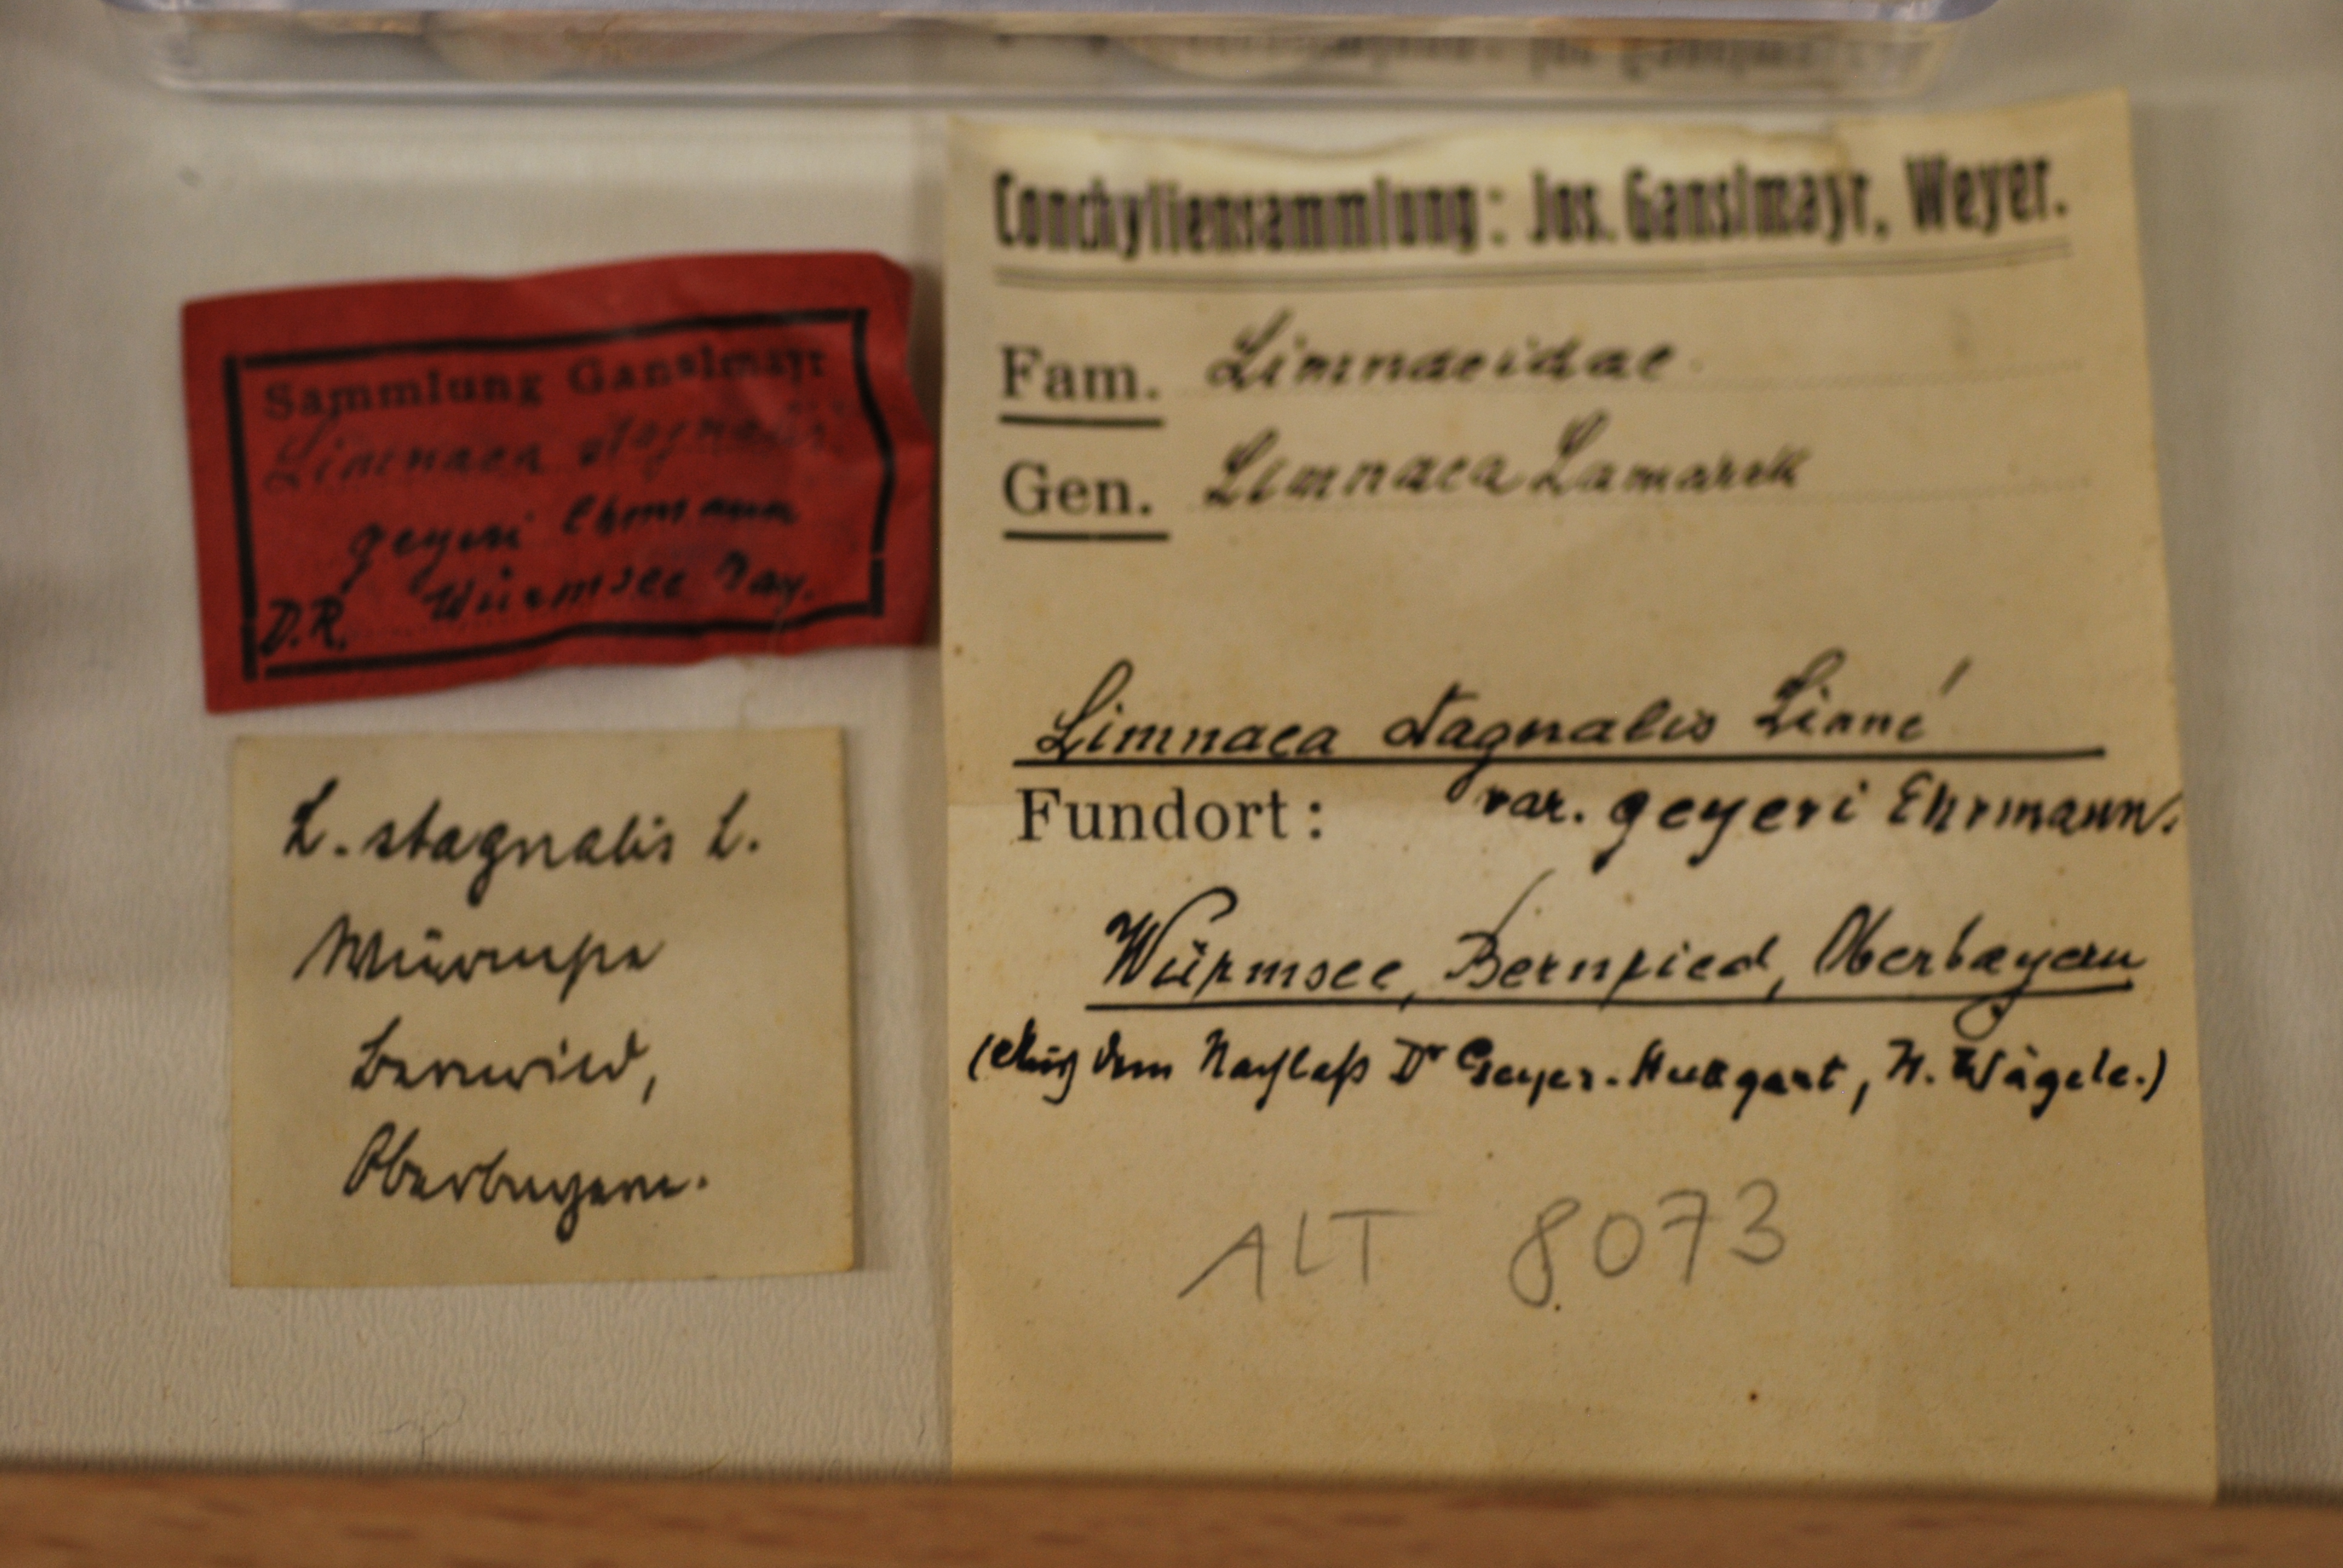 Sammlung Ganslmayr
Limnaea stagnalis
geyeri Ehrmann
D.R. Würmsee Bay.
L. stagnalis L.
Würmsee
Bernried,
Oberbayern.
Conchyliensammlung: Jos. Ganslmayr, Weyer.
Fam. Limnaeidae
Gen. Limnaea Lamarck
Limnaea stagnalis Linné
Fundort: var. geyeri Ehrmann.
Würmsee, Bernried, Oberbayern
(Aus dem Nachlaß Dr Geyer-Stuttgart, H. Wägele.)
ALT 8073